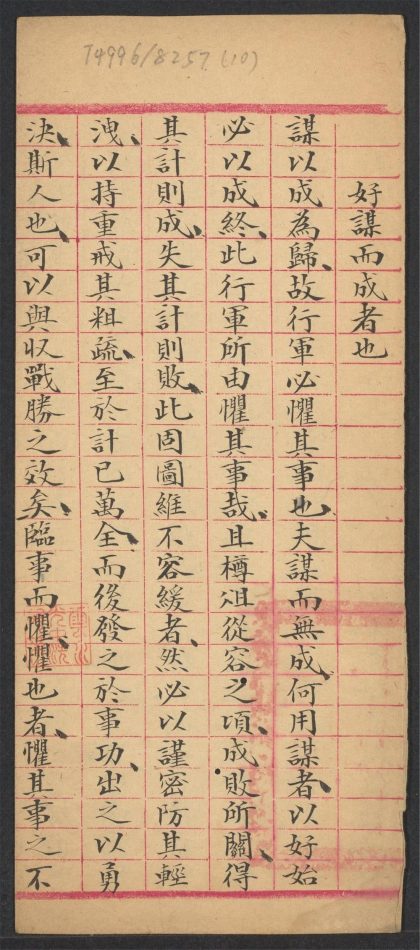 T4996/8257 (10)
好謀而成者也
謀以成為歸、故行軍必懼其事也、夫謀而無成、何用謀者、以好始
必以成終、此行軍所由懼其事哉、且樽俎從容之頃、成敗所關、得
其計則成、失其計則敗、此固圖維不容緩者、然必以謹密防其輕
洩、以持重戒其粗疏、至於計已萬全、而後發之於事功、出之以勇
決、斯人也、可以與収戰勝之效矣、臨事而懼、懼也者、懼其事之不